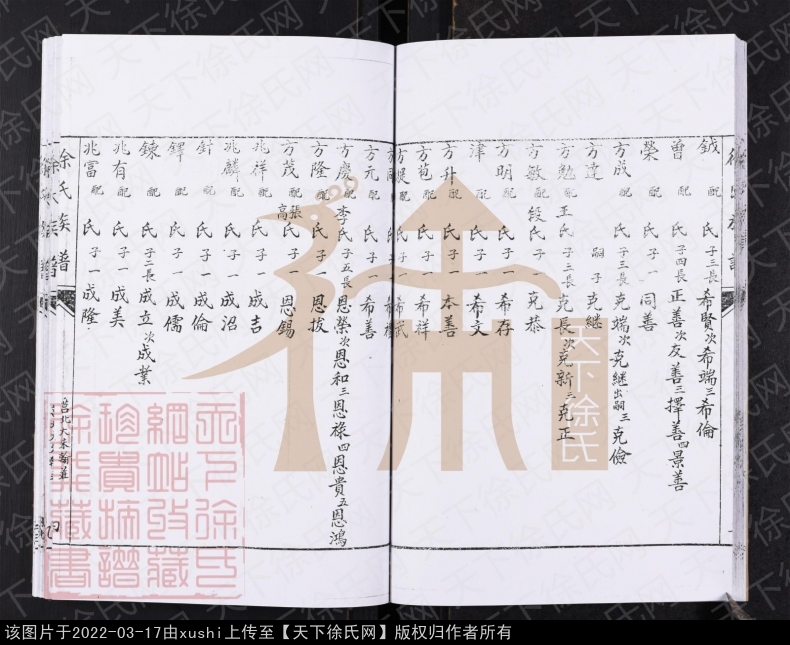 鉞 配 氏 子三長希賢次希端三希倫
曾 配 氏 子四長正善次友善三擇善四景善
榮 配 氏 子一同善
方成 配 氏 子三長克端次克繼出嗣三克儉
方達 配 嗣子克繼
方勉 配王氏 子三長克長次克新三克正
方敏 配段氏 子一克恭
方明 配 氏 子一希存
津 配 氏 子一希文
方升 配 氏 子一本善
方苞 配 氏 子一希祥
配 氏 子一希武
方元 配 氏 子一希善
方慶 配李氏 子五長恩榮次恩和三恩祿四恩貴五恩鴻
方隆 配 氏 子一恩拔
方茂 配張高氏 子一恩錫
兆祥 配 氏 子一成吉
兆麟 配 氏 子一成沼
針 配 氏 子一成倫
鐸 配 氏 子一成儒
鍊 配 氏 子二長成立次成業
兆有 配 氏 子一成美
兆富 配 氏 子一成隆
徐氏族譜
天下徐氏
天下徐氏网
该图片于2022-03-17由xushi上传至【天下徐氏网】版权归作者所有